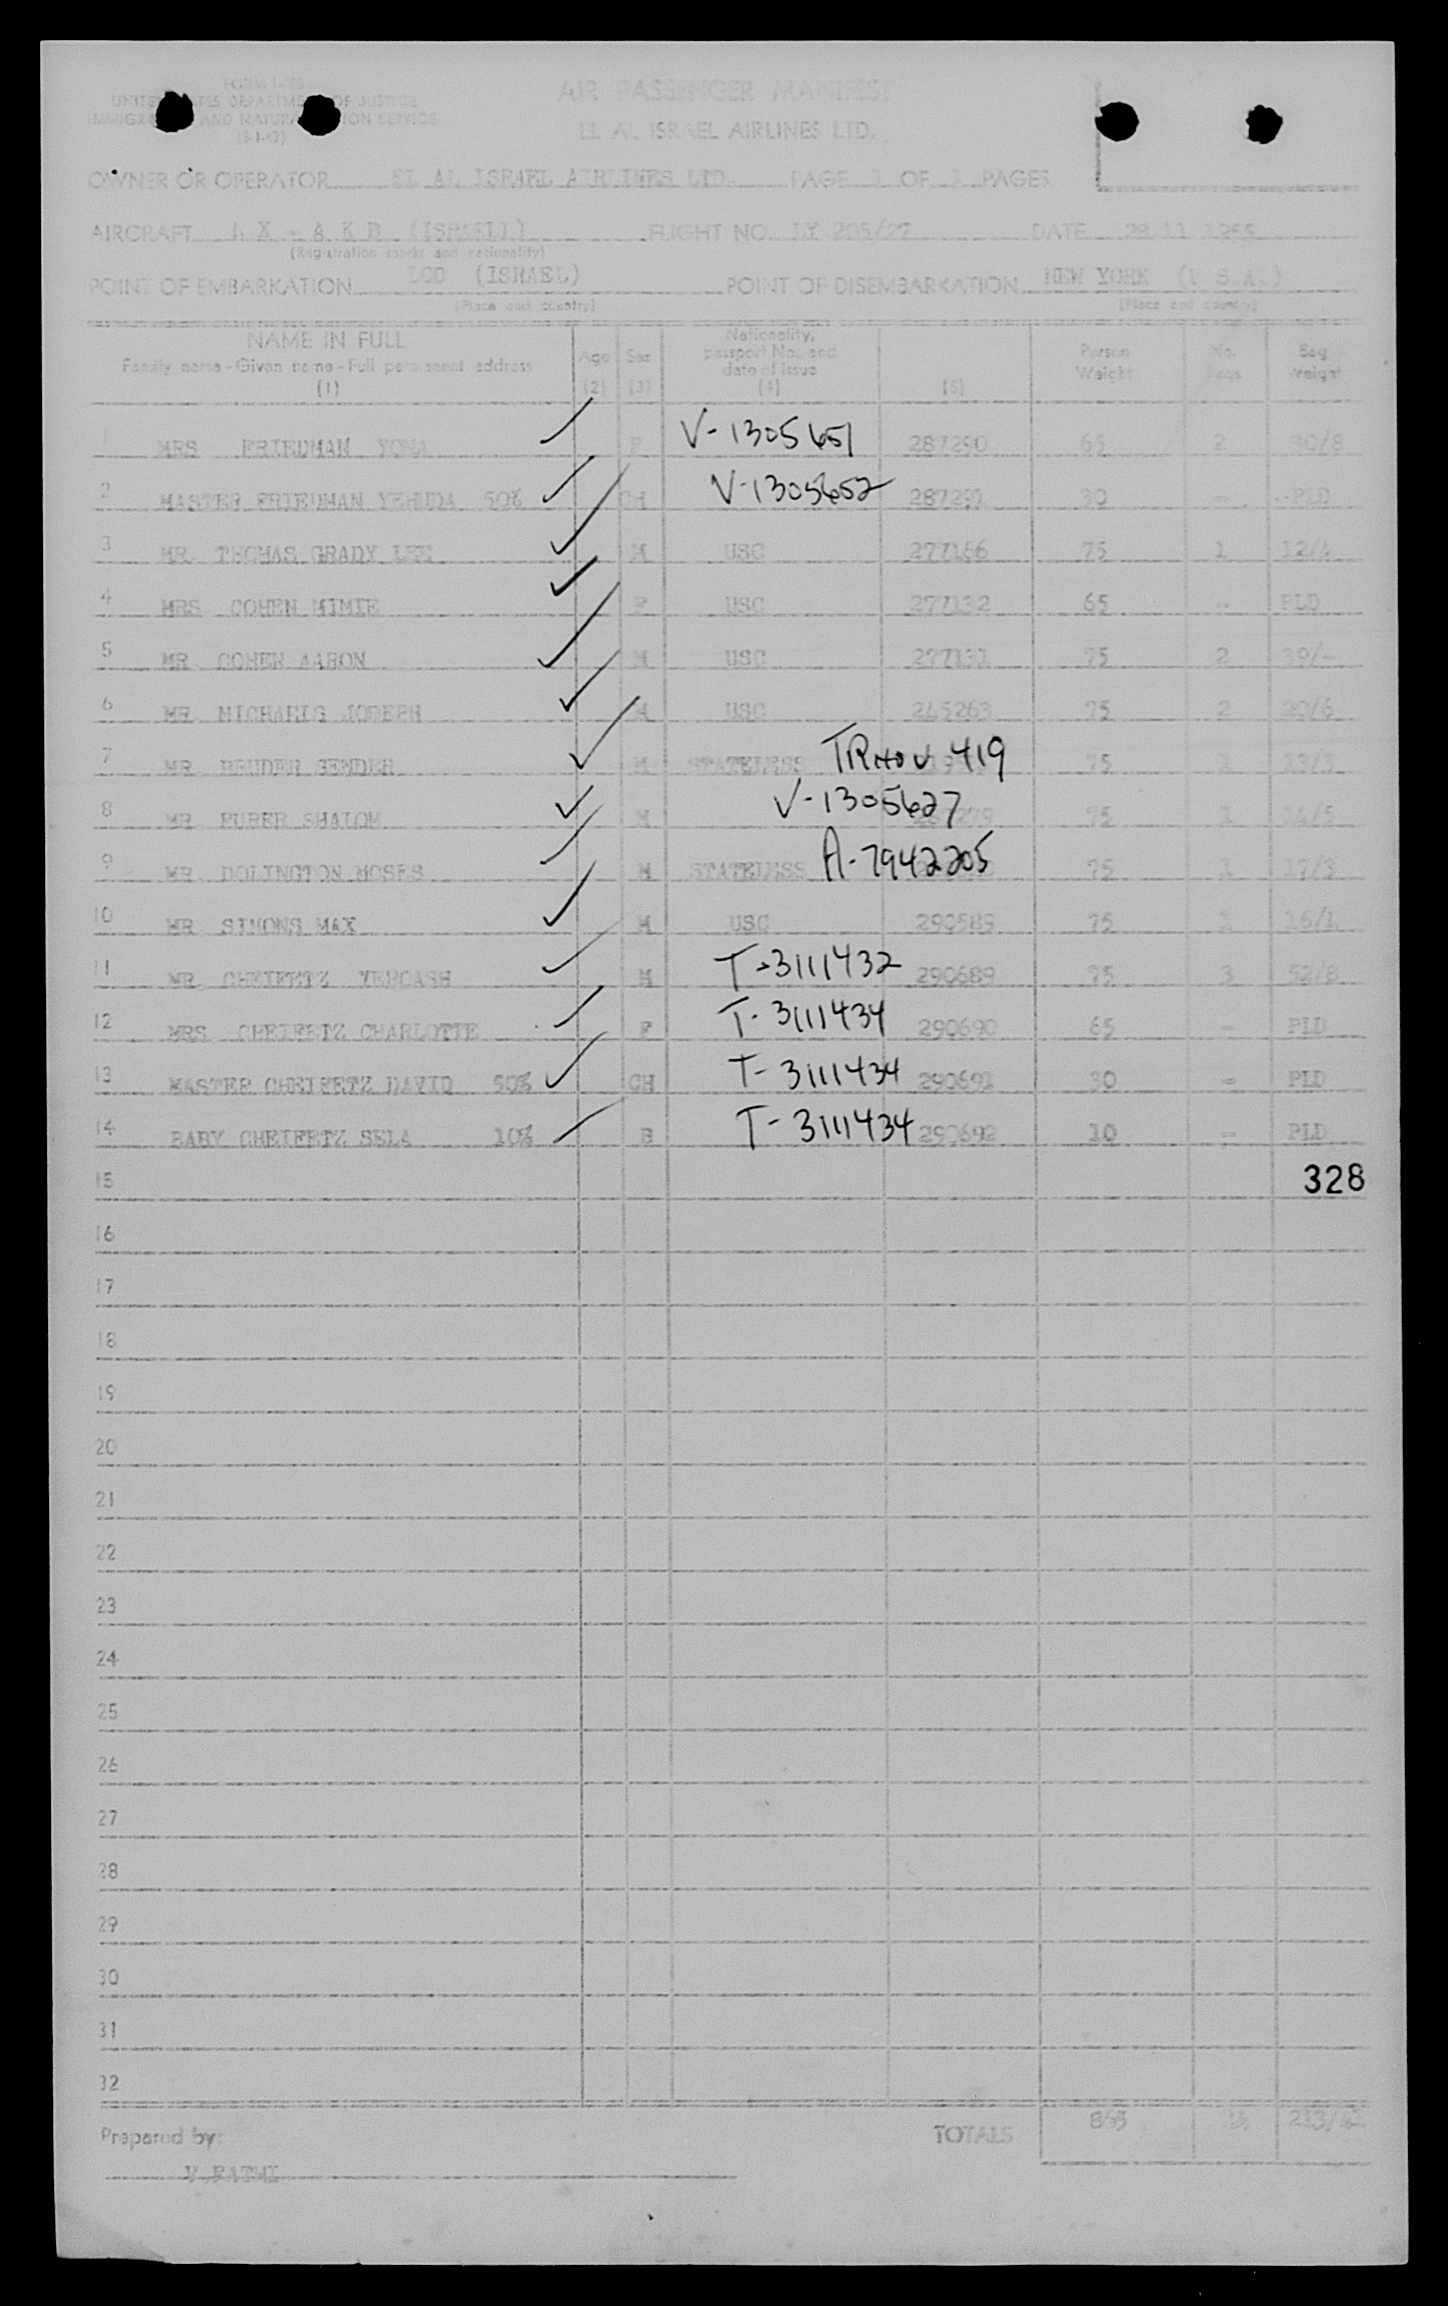 UNITED STATES DEPARTMENT OF JUSTICE
IMMIGRATION AND NATURALIZATION SERVICE
AIR PASSENGER MANIFEST
EL AL ISRAEL AIRLINES LTD.
OWNER OR OPERATOR EL AL ISRAEL AIRLINES LTD. PAGE OF PAGES
AIRCRAFT 4 X - A K B (ISRAELI) FLIGHT NO. LY 205/27 DATE 28 11 1955
(Registration marks and nationality)
POINT OF EMBARKATION LOD (ISRAEL) POINT OF DISEMBARKATION NEW YORK (U.S.A.)
(Place and country) (Place and country)
NAME IN FULL
Family name - Given name - Full permanent address
(1)
Age
(2)
Sex
(3)
Nationality,
passport No. and
date of issue
(4)
(5)
Person
Weight
No.
Bags
Bag
Weight
1 MRS FRIEDMAN YONA F V-1305651 287290 65 2 30/8
2 MASTER FRIEDMAN YEHUDA 50% CH V-1305652 287291 30 - PLD
3 MR. THOMAS GRADY LEE M USC 277166 75 1 12/4
4 MRS COHEN MIMIE F USC 277132 65 - PLD
5 MR COHEN AARON M USC 277131 75 2 39/-
6 MR JOSEPH M USC 245263 75 2 20/6
7 MR BRUDER SENDER M STATELESS 419 75 1 13/3
8 MR FURER SHALOM M V-1305627 75 1 14/5
9 MR DOLINGTON MOSES M STATELESS A-7942205 75 1 17/3
10 MR SIMONS MAX M USC 290589 75 1 16/4
11 MR CHEIFETZ YEROASH M T-3111432 290689 75 3 52/8
12 MRS CHEIFETZ CHARLOTTE F T-3111434 290690 65 - PLD
13 MASTER CHEIFETZ DAVID 50% CH T-3111434 290691 30 - PLD
14 BABY CHEIFETZ SELA 10% B T-3111434 290692 10 - PLD
15 328
16
17
18
19
20
21
22
23
24
25
26
27
28
29
30
31
32
Prepared by: TOTALS 213/
V.FATMI